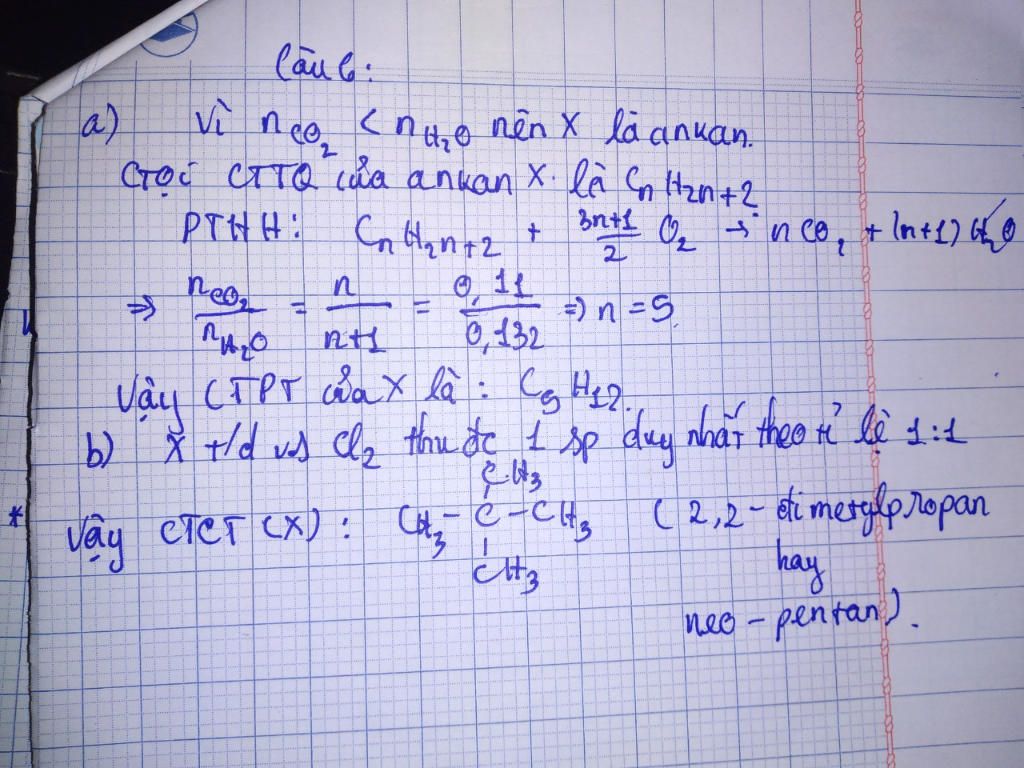 Câu 6:
a) Vì nCO₂ < nH₂O nên X là ankan.
Gọi CTTQ của ankan X là CnH2n+2.
PTHH: CnH2n+2 + 3n+1/2 O₂ → nCO₂ + (n+1) H₂O
⇒ nCO₂/nH₂O = n/n+1 = 0,11/0,132 ⇒ n = 5
Vậy CTPT của X là: C5H12.
b) X t/d vs Cl₂ thu đc 1 sp duy nhất theo tỉ lệ 1:1
CH₃
* Vậy CTCT (X): CH₃ – C – CH₃ (2,2 – đimetylpropan
CH₃ hay
neo – pentan).